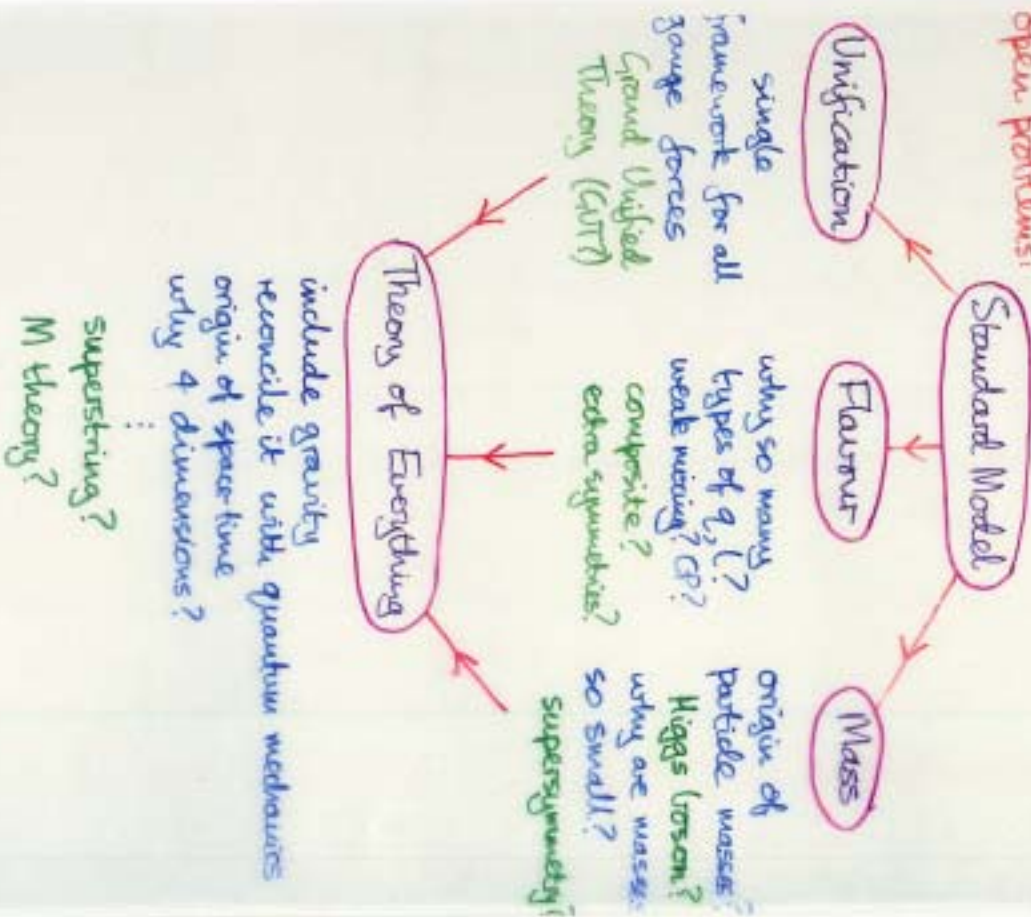 open problems!
Standard Model
Unification
Flavour
Mass
single
framework for all
gauge forces
Grand Unified
Theory (GUT?)
why so many
types of q, l?
weak mixing? CP?
composite?
extra symmetries?
origin of
particle masses?
Higgs boson?
why are masses
so small?
supersymmetry?
Theory of Everything
include gravity
reconcile it with quantum mechanics
origin of space-time
why 4 dimensions?
superstring?
M theory?